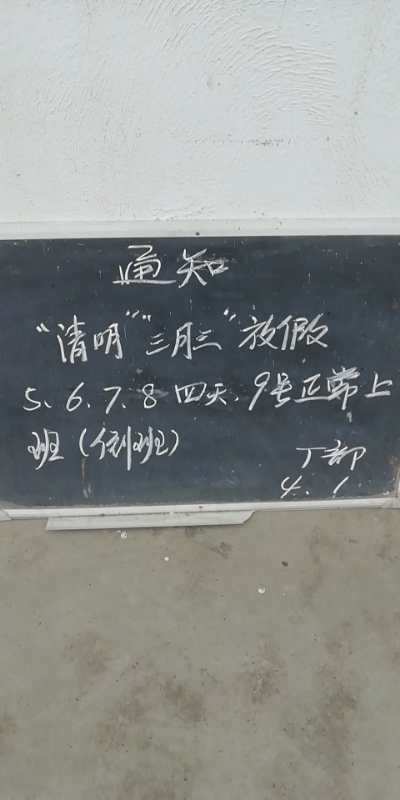 通知
“清明”“三月三”放假
5、6、7、8四天、9号正常上
班(倒班)
厂部
4.1